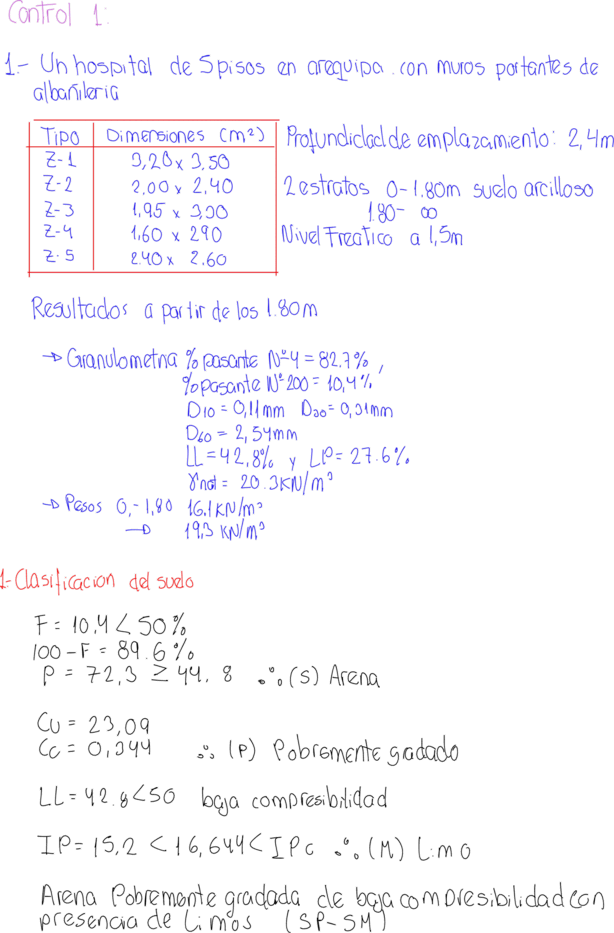 Control 1:
1.- Un hospital de 5 pisos en arequipa. con muros portantes de
albañileria
Tipo Dimensiones (m²)
Z-1 3,20 x 3,50
Z-2 2.00 x 2,40
Z-3 1,95 x 3,00
Z-4 1,60 x 290
Z-5 2.40 x 2.60
Profundidad de emplazamiento: 2,4m
2 estratos 0-1.80m suelo arcilloso
1.80- ∞
Nivel Freatico a 1,5m
Resultados a partir de los 1.80m
→ Granulometria % pasante Nº4 = 82.7%,
% pasante Nº200 = 10,4%
D10 = 0,11mm D30 = 0,31mm
D60 = 2,54mm
LL = 42,8% y LP = 27.6%
γnat = 20.3KN/m³
→ Pesos 0,-1,80 16.1KN/m³
→ 19,3 KN/m³
1-Clasificacion del suelo
F = 10,4 < 50%
100-F = 89.6%
P = 72,3 ≥ 44.8 ∴ (S) Arena
CU = 23,09
Cc = 0,344 ∴ (P) Pobremente gradado
LL = 42.8<50 baja compresibilidad
IP = 15.2 < 16,644 < IPc ∴ (M) Limo
Arena Pobremente gradada de baja compresibilidad con
presencia de Limos (SP-SM)